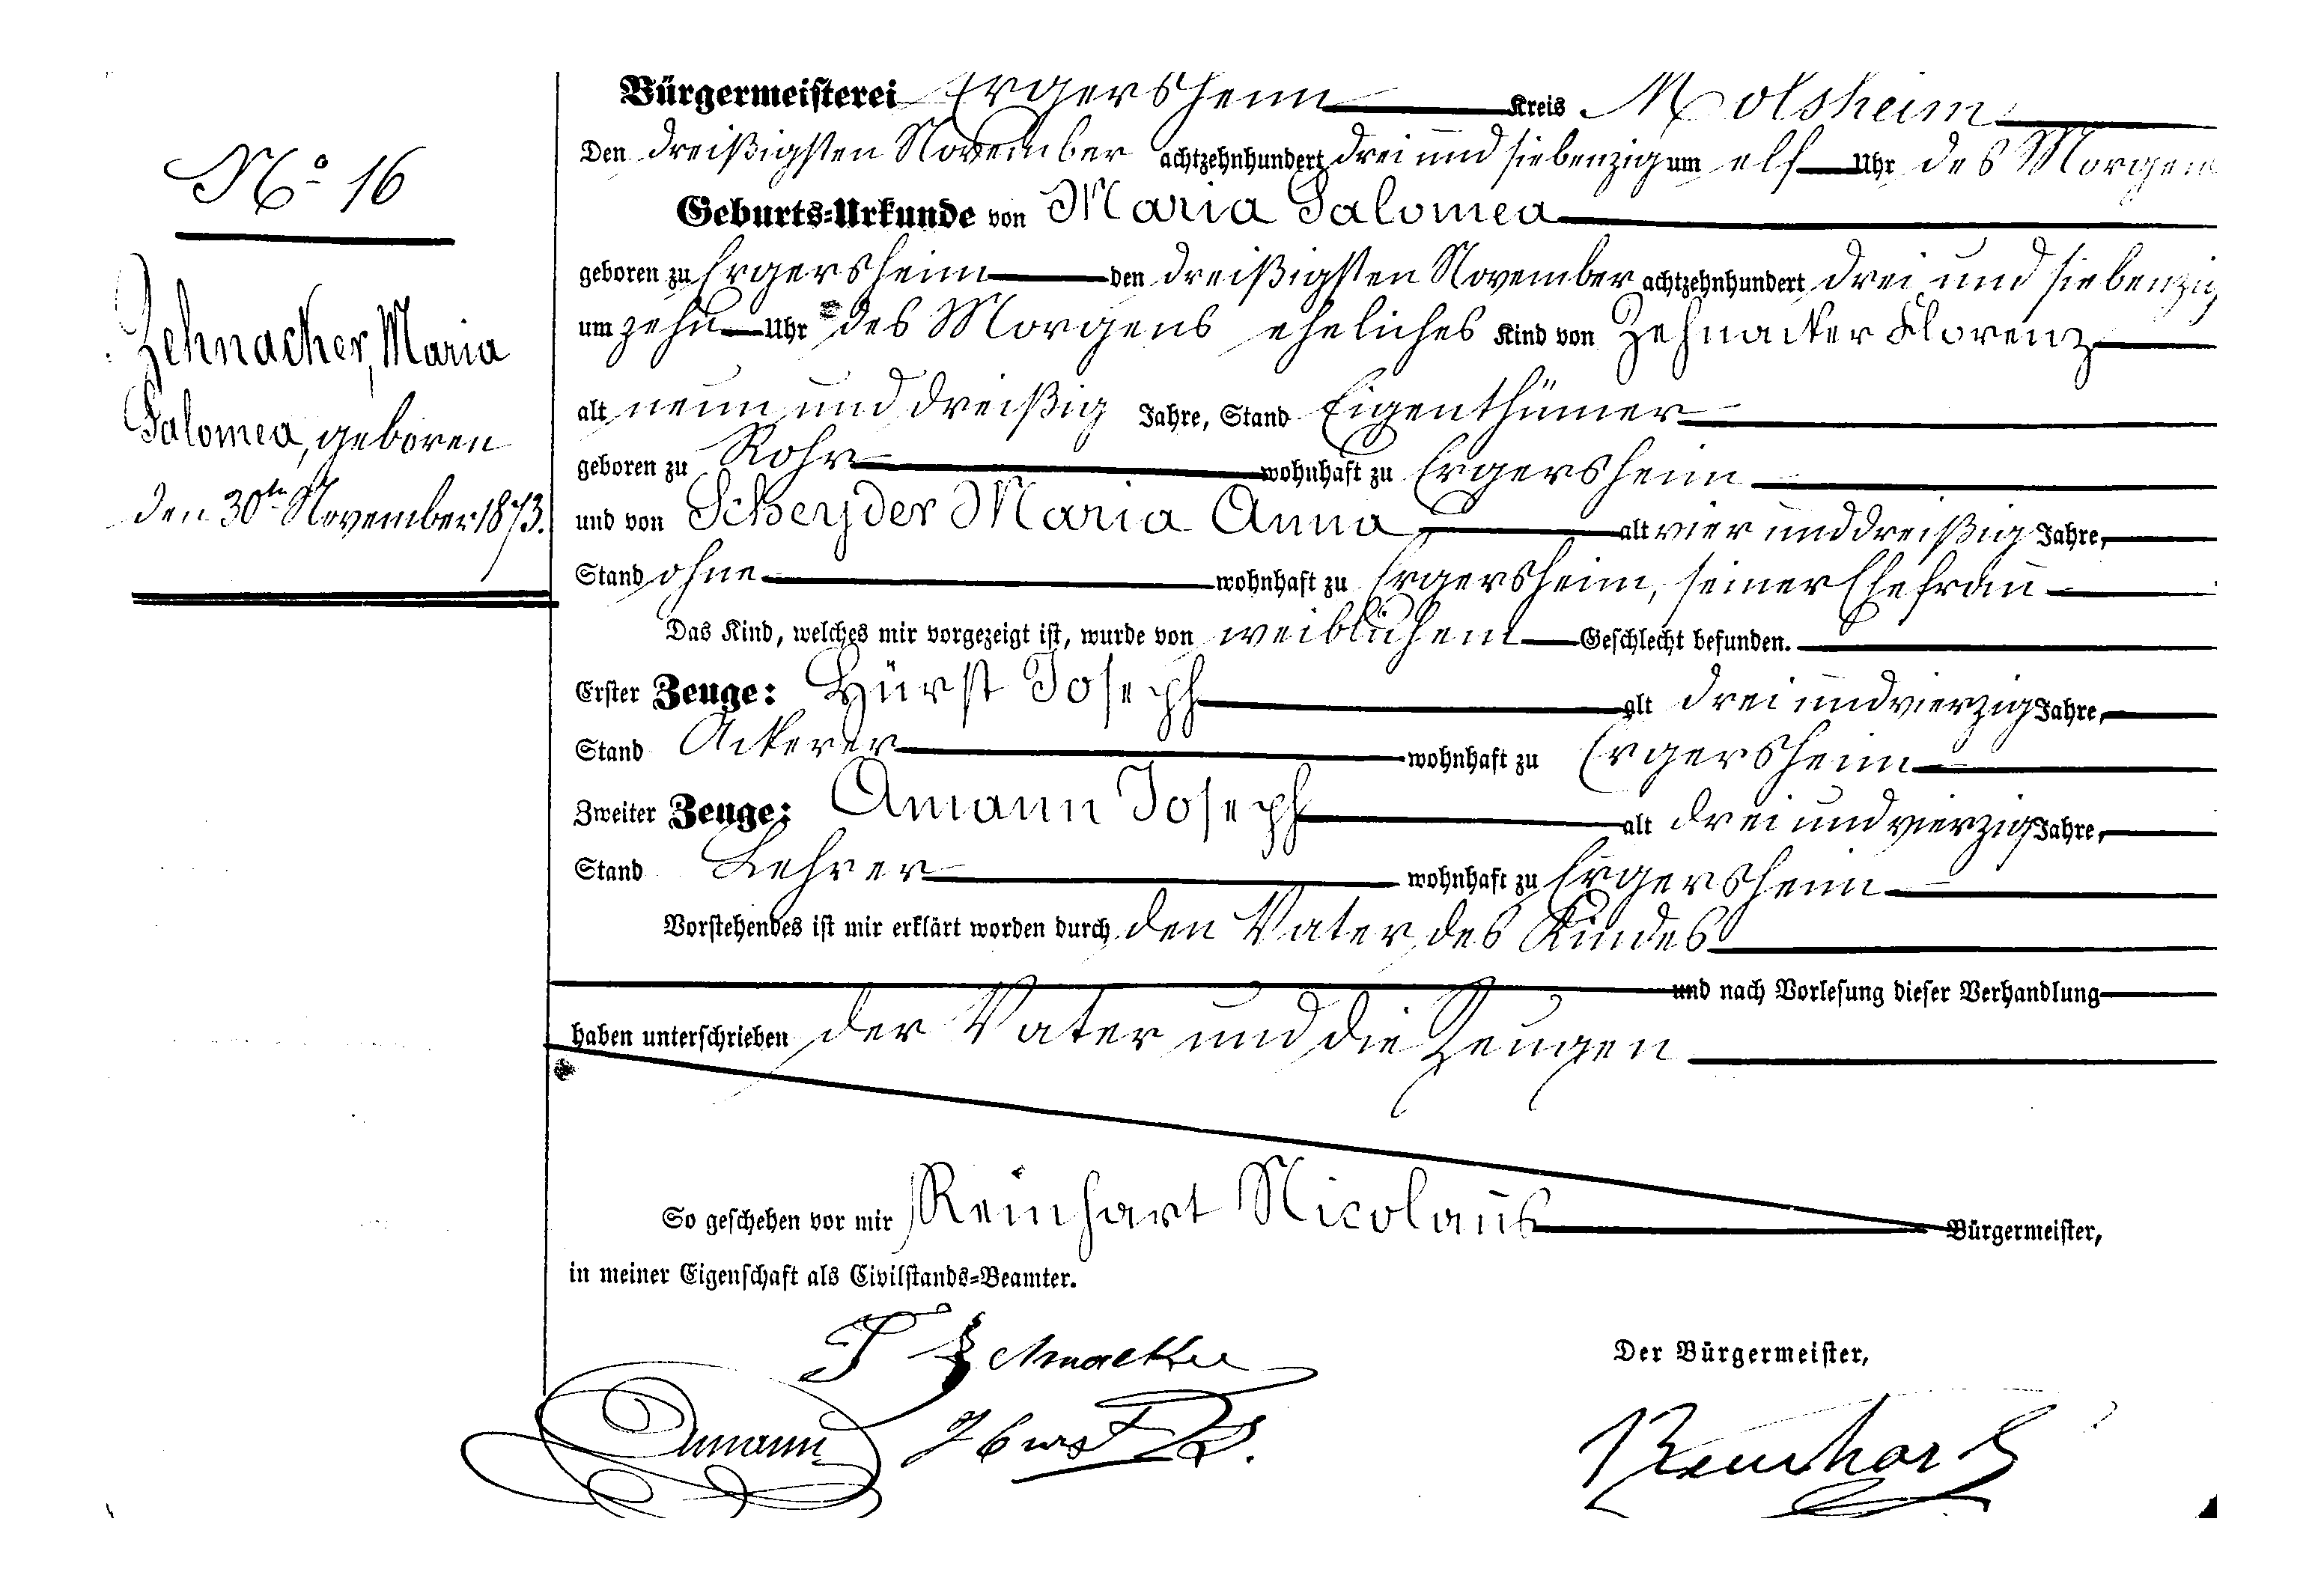 Bürgermeisterei Ergersheim Kreis Molsheim
Den dreißigsten November achtzehnhundert drei und siebenzig um elf Uhr des Morgens
Geburts-Urkunde von Maria Salomea
geboren zu Ergersheim den dreißigsten November achtzehnhundert drei und siebenzig
um zehn Uhr des Morgens eheliches Kind von Zehnacker Florenz
alt neun und dreißig Jahre, Stand Eigenthümer
geboren zu Rohr wohnhaft zu Ergersheim
und von Scheyder Maria Anna alt vier und dreißig Jahre,
Stand ohne wohnhaft zu Ergersheim, seiner Ehefrau
Das Kind, welches mir vorgezeigt ist, wurde von weiblichem Geschlecht befunden.
Erster Zeuge: Hürst Joseph alt drei und vierzig Jahre,
Stand Ackerer wohnhaft zu Ergersheim
Zweiter Zeuge: Amann Joseph alt drei und vierzig Jahre,
Stand Lehrer wohnhaft zu Ergersheim
Vorstehendes ist mir erklärt worden durch den Vater des Kindes
und nach Vorlesung dieser Verhandlung
haben unterschrieben der Vater und die Zeugen
So geschehen vor mir Reinhart Nicolaus Bürgermeister,
in meiner Eigenschaft als Civilstands-Beamter.
Der Bürgermeister,
F Zehnacker
Amann Hurst
Reinhart
No 16
Zehnacker, Maria
Salomea, geboren
den 30ten November 1873.